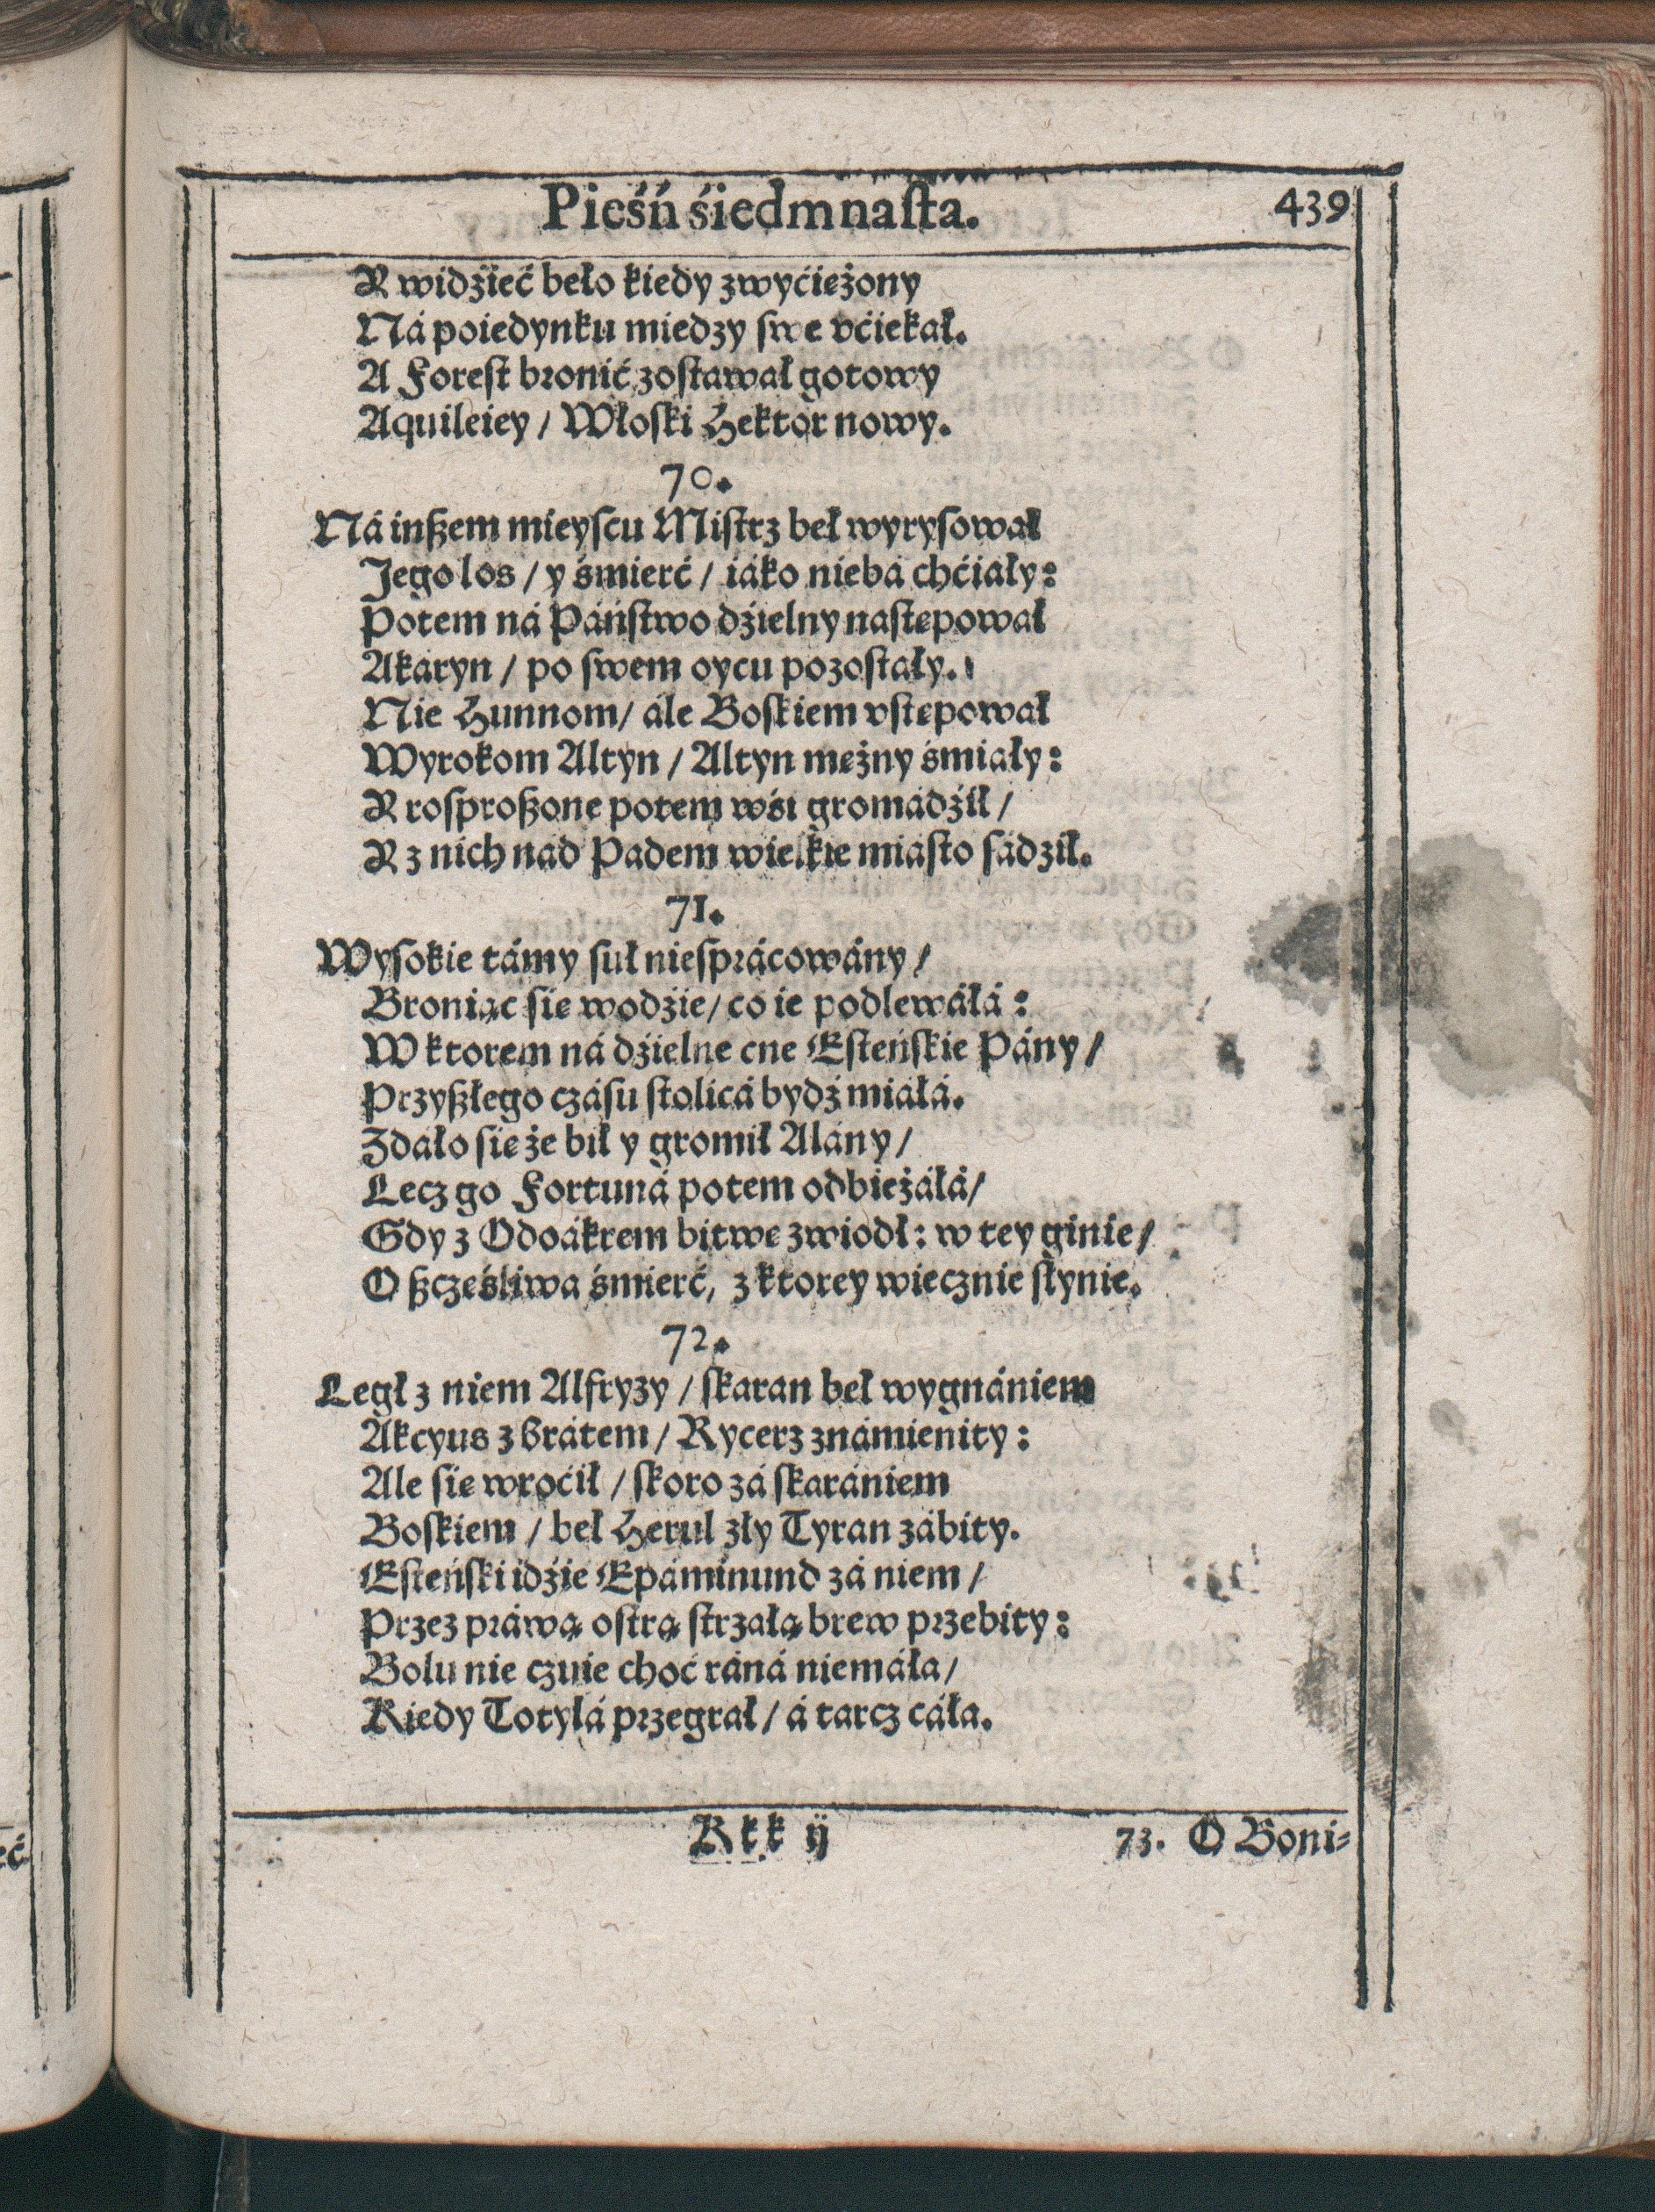 Pieśń śiedmnaſta. 439
Y widźieć beło kiedy zwyćieżony
Ná poiedynku miedzy ſwe vćiekał.
A Foreſt bronić zoſtawał gotowy
Aquileiey / Włoſki Hektor nowy.
70.
Ná inßem mieyscu Miſtrz beł wyryſował
Jego los / y śmierć / iáko niebá chćiały:
Potem ná Páńſtwo dźielny naſtępował
Akaryn / po ſwem oycu pozoſtały.
Nie Hunnom / ále Boſkiem vſtępował
Wyrokom Altyn / Altyn mężny śmiały:
Y roſproßone potem wśi gromádźił /
Y z nich nad Padem wielkie miáſto ſadził.
71.
Wyſokie támy ſuł nieſprácowány /
Broniąc ſie wodźie / co ie podlewáłá:
W ktorem ná dźielne cne Eſteńſkie Pány /
Przyßłego czáſu ſtolicá bydź miáłá.
Zdało ſie że bił y gromił Alány /
Lecz go Fortuná potem odbieżáłá /
Gdy z Odoákrem bitwę zwiodł: w tey ginie /
O ßczęśliwa śmierć, z ktorey wiecznie ſłynie.
72.
Legł z niem Alfryzy / ſkaran beł wygnániem
Akcyus z brátem / Rycerz známienity:
Ale ſie wroćił / ſkoro zá ſkaraniem
Boſkiem / beł Herul zły Tyran zábity.
Eſteńſki idźie Epáminund zá niem /
Przez práwą oſtrą ſtrzałą brew przebity:
Bolu nie czuie choć ráná niemáła /
Kiedy Totylá przegrał / á tarcz cáła.
Kkk ij 73. O Boni⸗